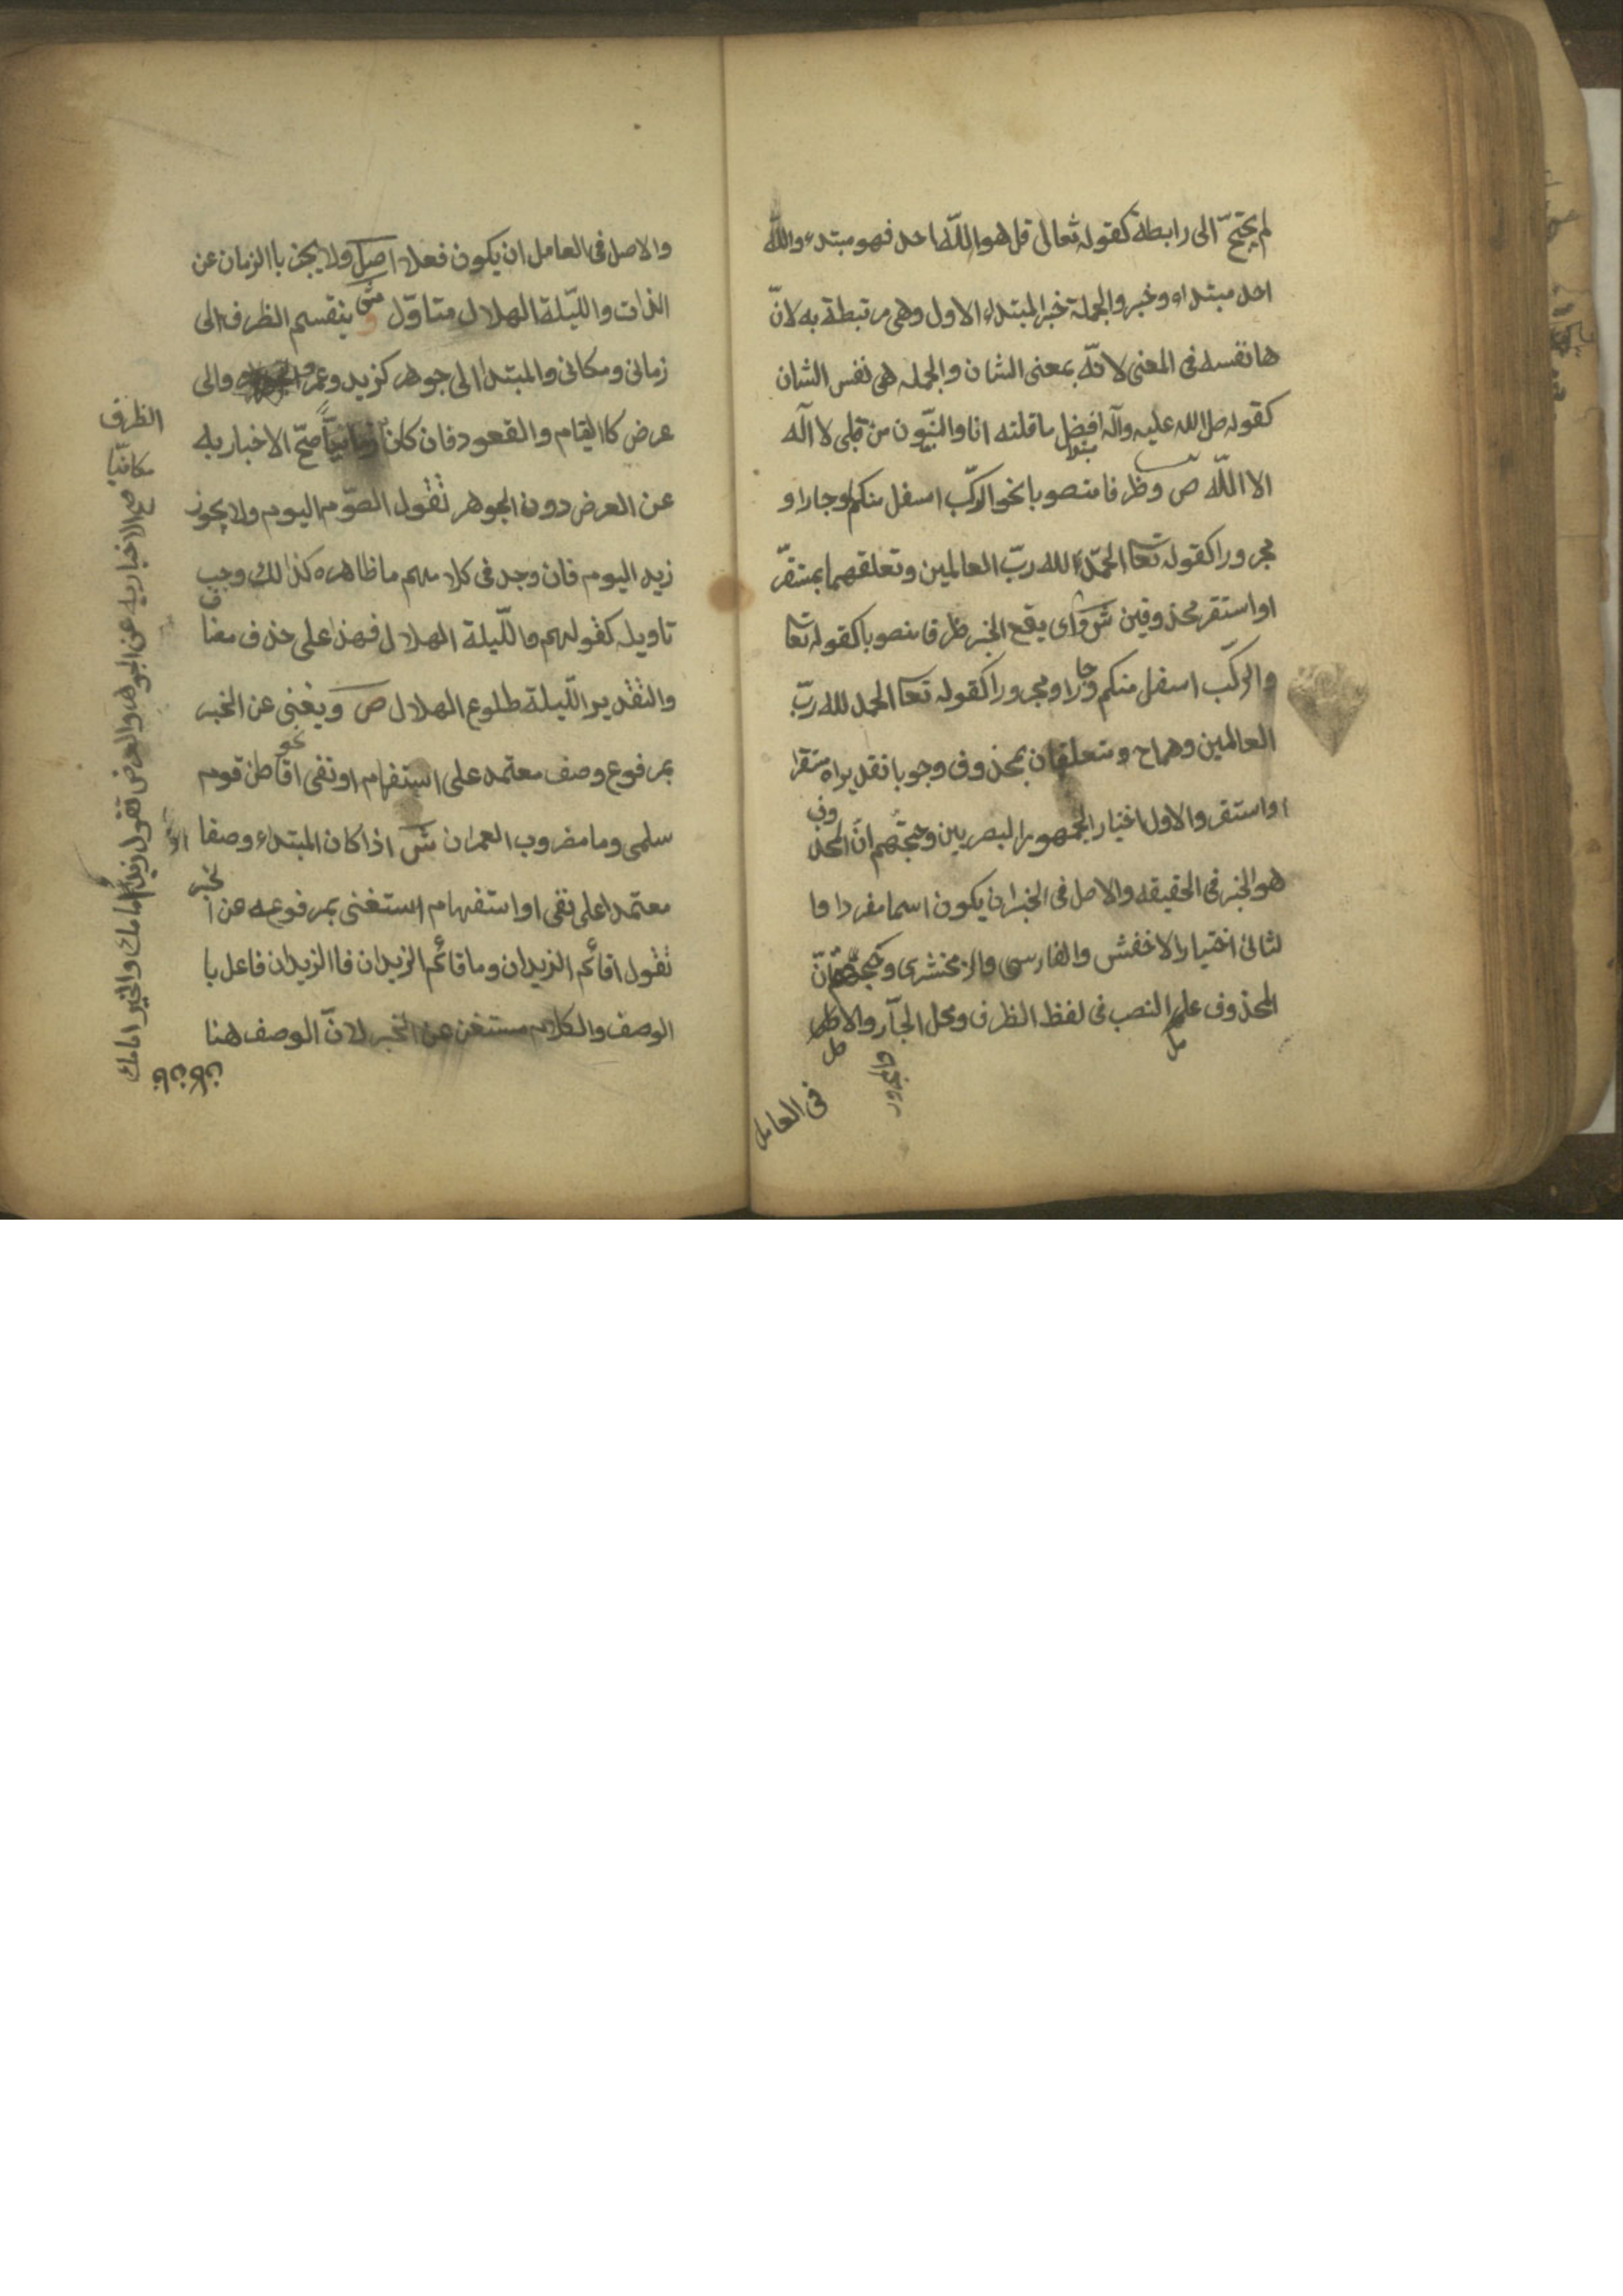 لم يحتج الى رابطة كقوله تعالى قل هو الله احد فهو مبتدء والله
احد مبتداء وخبر والجملة خبر المبتدء الاول وهى مرتبطة به لانّ
ها نفسه فى المعنى لانّه بمعنى الشان والجمله هى نفس الشان
كقوله صل الله عليه وآله افضل ما قلته انا والنبّيون من قبلى لا اله
الا اللّه ص وظرفا منصوبا نحو الركب اسفل منكم وجارا و
مجرورا كقوله تعا الحمد لله ربّ العالمين وتعلقهما بمستقرّ
او استقر محذوفين ش واى يقع الخبر ظرفا منصوبا كقوله تعا
والركب اسفل منكم وجارا ومجرورا كقوله تعا الحمد لله ربّ
العالمين وهما ح متعلقان بمحذوف وجوبا تقديراه مستقر
او استقر والاول اختيار الجمهور البصريين وحجتّهم انّ المحذوف
هو الخبر فى الحقيقه والاصل فى الخبر ان يكون اسما مفردا وا
لثانى اختيار الاخفش والفارسى والزمخشرى وحجتهم انّ
المحذوف عامل النصب فى لفظ الظرف ومحل الجآر والا
فى العامل
والاصل فى العامل ان يكون فعلا اصل ولا يخبر باالزمان عن
الذات والليّلة الهلال متاوّل ش ينقسم الظرف الى
زمانى ومكانى والمبتدا الى جوهر كزيد وعمرو والى
عرض كاالقيام والقعود فان كان زمانيّاً صحّ الاخبار به
عن العرض دون الجوهر تقول الصّوم اليوم ولا يجوز
زيد اليوم فان وجد فى كلامهم ما ظاهره كذالك وجب
تاويله كقولهم واللّيلة الهلال فهذا على حذف مضاف
والتقدير اللّيلة طلوع الهلال ص ويغنى عن الخبر
بمرفوع وصف معتمد على استفهام او نفى نحو اقاطن قوم
سلمى وما مضروب العمران ش اذا كان المبتداء وصفا
معتمدا على نفى او استفهام استغنى بمرفوعه عن الخبر
تقول اقائم الزيدان وما قائم الزيدان فاالزيدان فاعل با
الوصف والكلام مستغن عن الخبر لانّ الوصف هنا
الظرف
مكانيّا
صح الاخبار به عن الجوهر والعرض تقول زيد امامك والخير امامك